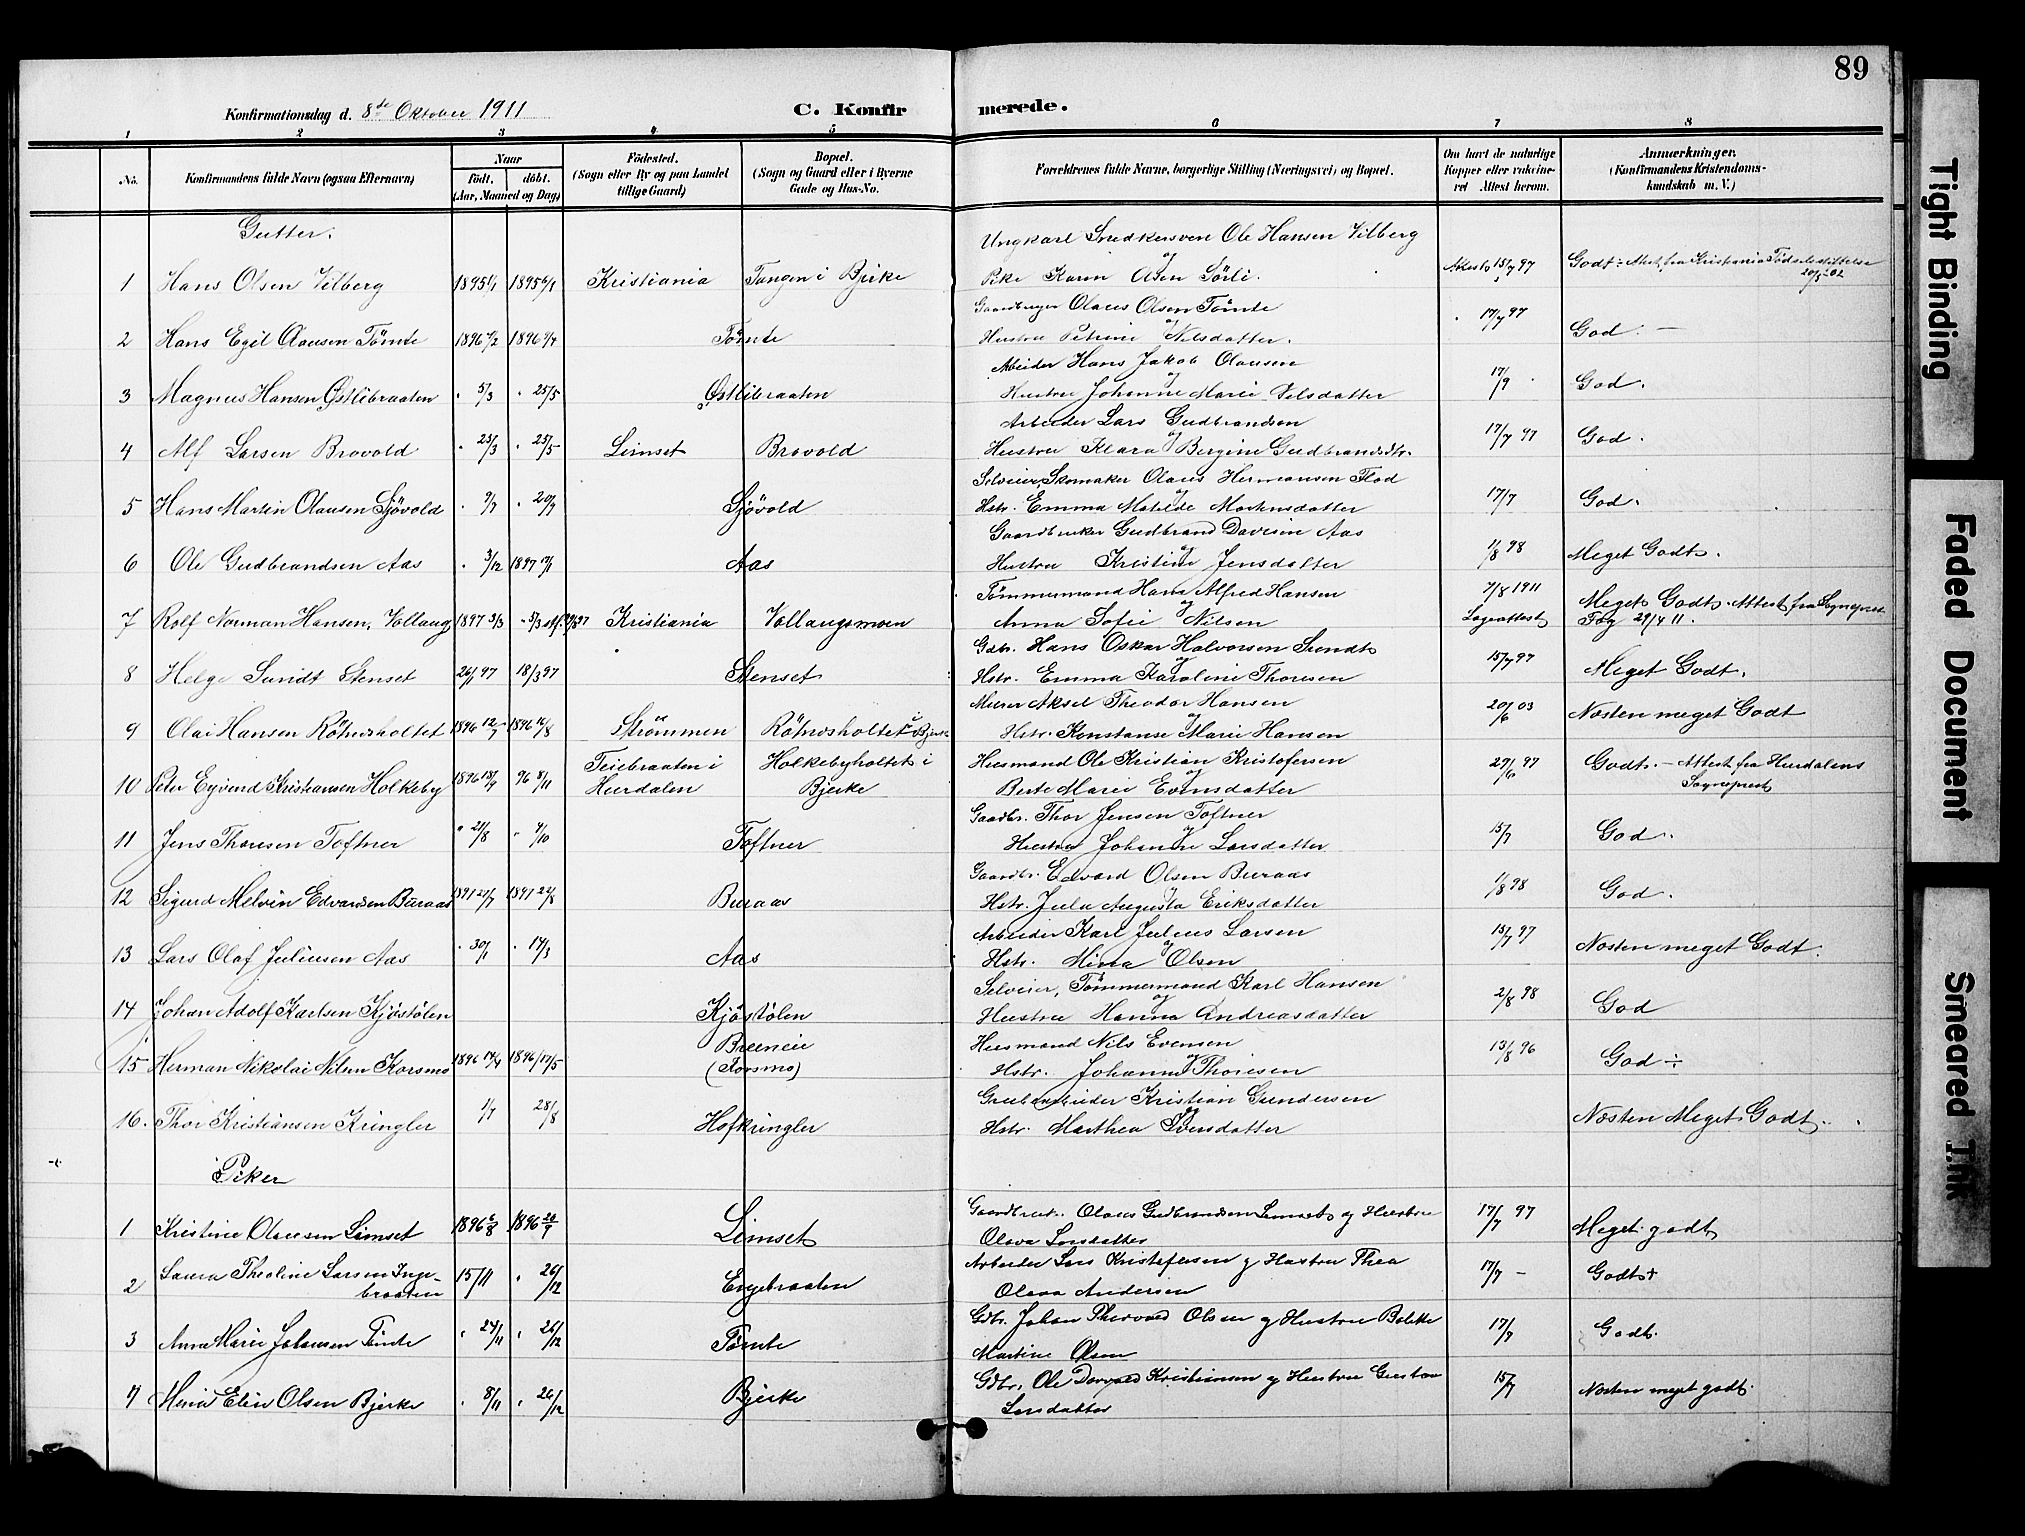 89
Konfirmationsdag d. 8de Oktober 1911 C. Konfirmerede.
1 2 3 4 5 6 7 8
No. Konfirmandens fulde Navn (ogsaa Efternavn) Naar født. døbt. (Aar, Maaned og Dag) Födested. (Sogn eller By og paa Landet tillige Gaard) Bopæl. (Sogn og Gaard eller i Byerne Gade og Hus-No. Forældrenes fulde Navne, borgerlige Stilling (Næringsvei) og Bopæl. Om havt de naturlige Kopper eller vakcineret Attest herom. Anmærkninger. (Konfirmandens Kristendomskundskab m. V.)
Gutter.
Ungkarl Snedkersven Ole Hansen Vilberg
og
1 Hans Olsen Vilberg 1895 1895 Kristiania Tangen i Bjerke Pike Karin Olsen Sörli. Attest 15/7 97 Godt - Attest fra Kristiania Födselsstiftelse 20/5 02
Gaardbruger Olaus Olsen Tömte
og
2 Hans Egil Olausen Tömte 1896 1896 Tömte Hustru Petrine Nilsdatter. 17/7 97 God. -
Arbeider Hans Jakob Olausen
og
3 Magnus Hansen Østlibraaten " 5/3 " 25/5 Østlibraaten Hustru Johanne Marie Nilsdatter 17/9 God.
Arbeider Lars Gudbrandsen
og
4 Alf Larsen Brovold " 23/3 " 25/5 Limset Brovold Hustru Klara Bergine Gudbrandsdtr. 17/7 97 God.
Selveier, Skomaker Olaus Hermansen Flod
og
5 Hans Martin Olausen Sjövold " 9/7 " 20/9 Sjövold Hstr. Emma Matilde Martinsdatter 17/7 God.
Gaardbruker Gudbrand Davisen Aas
og
6 Ole Gudbrandsen Aas " 3/12 1897 Aas Hustru Kristine Jensdatter 1/8 98 Meget Godt.
Tömmermand Hans Alfred Hansen
og
7 Rolf Norman Hansen, Vollaug 1897 3/3 Kristiania Vollaugsmoen Anna Sofie Nilsen 7/8 1911 Lægeattest Meget Godt. Attest fra Sogneprest Fög 29/4 11.
Gdbr. Hans Oskar Halvorsen Sundt
og
8 Helge Sundt Stenset 26/1 97 18/3 97 Stenset Hstr. Emma Karoline Thoresen 15/7 97 Meget Godt.
Murer Aksel Theodor Hansen
og
9 Olai Hansen Rötnesholtet 1896 12/7 1896 16/8 Strömmen Rötnesholtet i Bjerke Hstr. Konstanse Marie Hansen 20/6 03 Næsten meget Godt
Husmand Ole Kristian Kristofersen
og
10 Peter Eyvind Kristiansen Holkeby 1896 18/9 96 8/11 Teiebraaten i Hurdalen Holkebyholtet i Bjerke Berte Marie Evensdatter 29/6 97 Godt. - Attest fra Hurdalens Sogneprest
Gaardbr. Thor Jensen Toftner
og
11 Jens Thoresen Toftner " 21/8 " 4/10 Toftner Hustru Johanne Larsdatter 15/7 God.
Gaardbr. Edvard Olsen Buraas
12 Sigurd Melvin Edvardsen Buraas 1897 1897 Buraas Hstr. Jula Augusta Eriksdatter 1/8 98 God.
Arbeider Karl Julius Larsen
og
13 Lars Olaf Juliusen Aas " 30/1 " 14/3 Aas Hstr. Mina Olsen 15/7 97 Næsten meget Godt.
Selveier, Tömmermand Karl Hansen
og
14 Johan Adolf Karlsen Kjöstölen Kjöstölen Hustru Hanna Andreasdatter 2/8 98 God
Husmand Nils Evensen
og
15 Herman Nikolai Nilsen Korsmo 1896 14/4 1896 17/5 (Korsmo) Hstr. Johanne Thoresen 13/8 96 God ÷
Grubearbeider Kristian Gundersen
og
16. Thor Kristiansen Kringler 1/7 28/8 Hofkringler Hstr. Marthea Iversdatter Næsten Meget Godt.
Piker
1 Kristine Olausen Limset 1896 6/8 1896 Limset Gaardbruk. Olaus Gudbrandsen Limset og Hustru Olava Larsdatter 17/7 97 Meget godt
2 Laura Theoline Larsen Ingebraaten 15/11 " 26/12 Engebraaten Arbeider Lars Kristofersen og Hustru Thea Olava Andersen 17/7 - Godt+
3 Anna Marie Johansen Tömte " 24/11 " 26/12 Tömte Gdbr. Johan Thorvald Olsen og Hustru Bolette Martine Olsen 17/7 Godt.
4 Maria Elise Olsen Bjerke " 8/11 " 26/12 Bjerke Gdbr. Ole Torvald Kristiansen og Hustru Gustava Larsdatter 15/7 Næsten meget godt.
Tight Binding
Faded Document
Smeared Ink